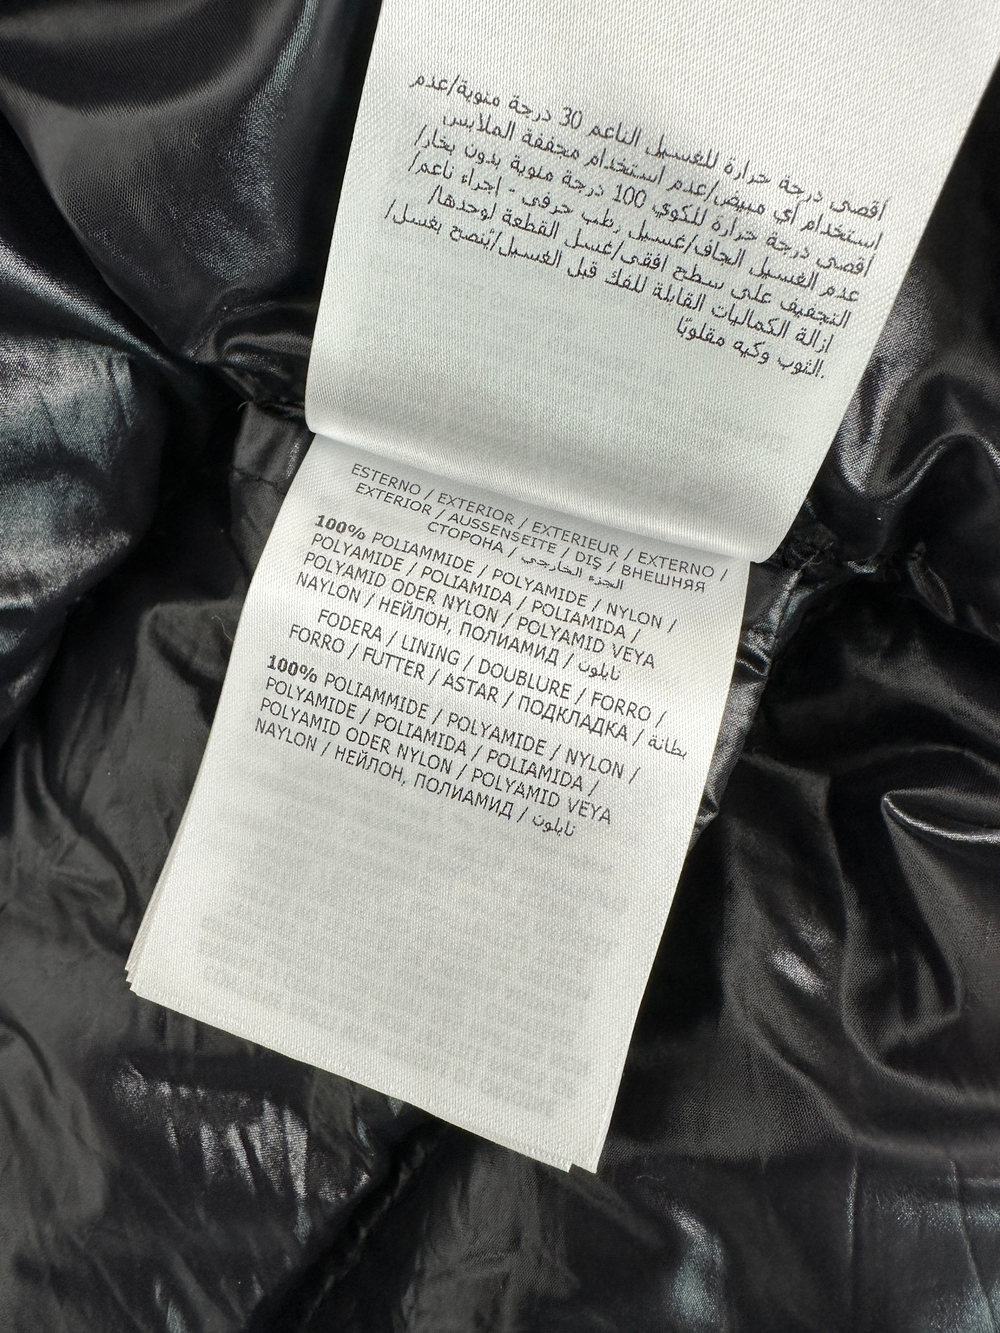 أقصى درجة حرارة للغسيل الناعم 30 درجة مئوية/عدم
استخدام أي مبيض/عدم استخدام مجففة الملابس
أقصى درجة حرارة للكوي 100 درجة مئوية بدون بخار/
عدم الغسيل الجاف/غسيل رطب حرفي - إجراء ناعم/
التجفيف على سطح افقي/غسل القطعة لوحدها/
ازالة الكماليات القابلة للفك قبل الغسيل/يُنصح بغسل/
الثوب وكيه مقلوبًا.
ESTERNO / EXTERIOR / EXTERIEUR / EXTERNO /
EXTERIOR / AUSSENSEITE / DIŞ / ВНЕШНЯЯ
СТОРОНА / الجزء الخارجي
100% POLIAMMIDE / POLYAMIDE / NYLON /
POLYAMIDE / POLIAMIDA / POLIAMIDA /
POLYAMID ODER NYLON / POLYAMID VEYA
NAYLON / НЕЙЛОН, ПОЛИАМИД / نايلون
FODERA / LINING / DOUBLURE / FORRO /
FORRO / FUTTER / ASTAR / ПОДКЛАДКА / بطانة
100% POLIAMMIDE / POLYAMIDE / NYLON /
POLYAMIDE / POLIAMIDA / POLIAMIDA /
POLYAMID ODER NYLON / POLYAMID VEYA
NAYLON / НЕЙЛОН, ПОЛИАМИД / نايلون